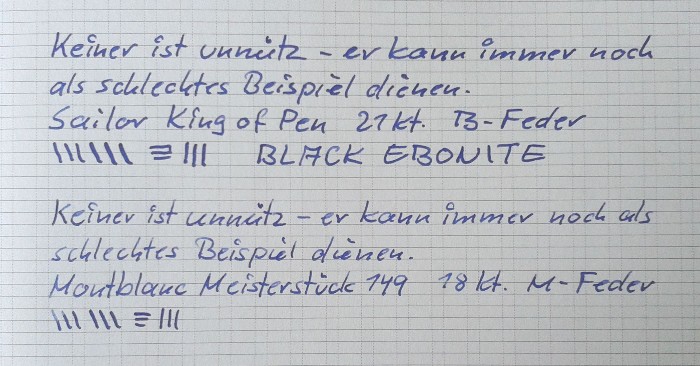 Keiner ist unnütz - er kann immer noch
als schlechtes Beispiel dienen.
Sailor King of Pen 21kt. B-Feder
BLACK EBONITE
Keiner ist unnütz - er kann immer noch als
schlechtes Beispiel dienen.
Montblanc Meisterstück 149 18kt. M-Feder